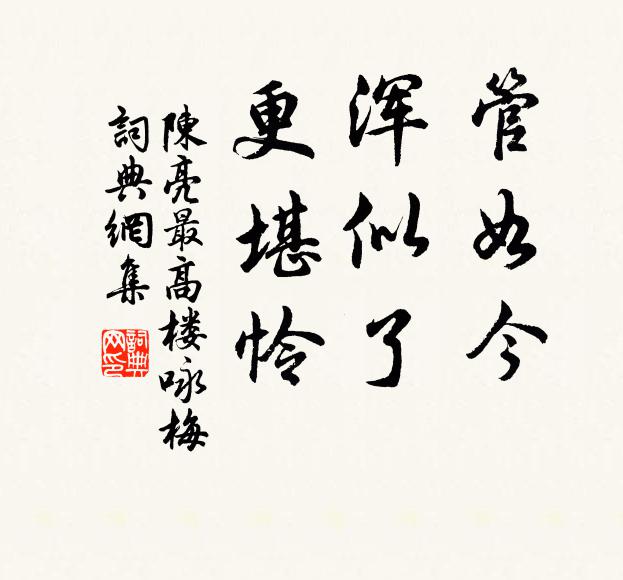 管如今
浑似了
更堪怜
陳亮最高楼咏梅
詞典網集
詞典
网印